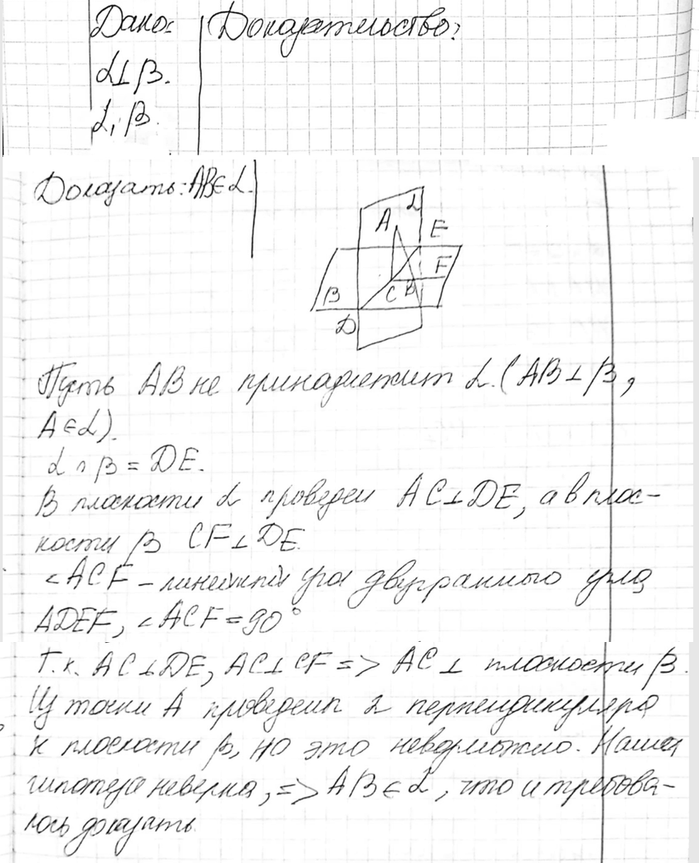 Дано: Доказательство:
α⊥β.
α, β.
Доказать: AB∈α.
A α E
F
β C B
D
Пусть AB не принадлежит α. (AB⊥β,
A∈α).
α∩β = DE.
В плоскости α проведём AC⊥DE, а в плос-
кости β CF⊥DE.
∠ACF – линейный угол двугранного угла
ADEF, ∠ACF = 90°
Т.к. AC⊥DE, AC⊥CF => AC⊥ плоскости β.
Из точки A проведены 2 перпендикуляра
к плоскости β, но это невозможно. Наша
гипотеза неверна, => AB∈α, что и требова-
лось доказать.